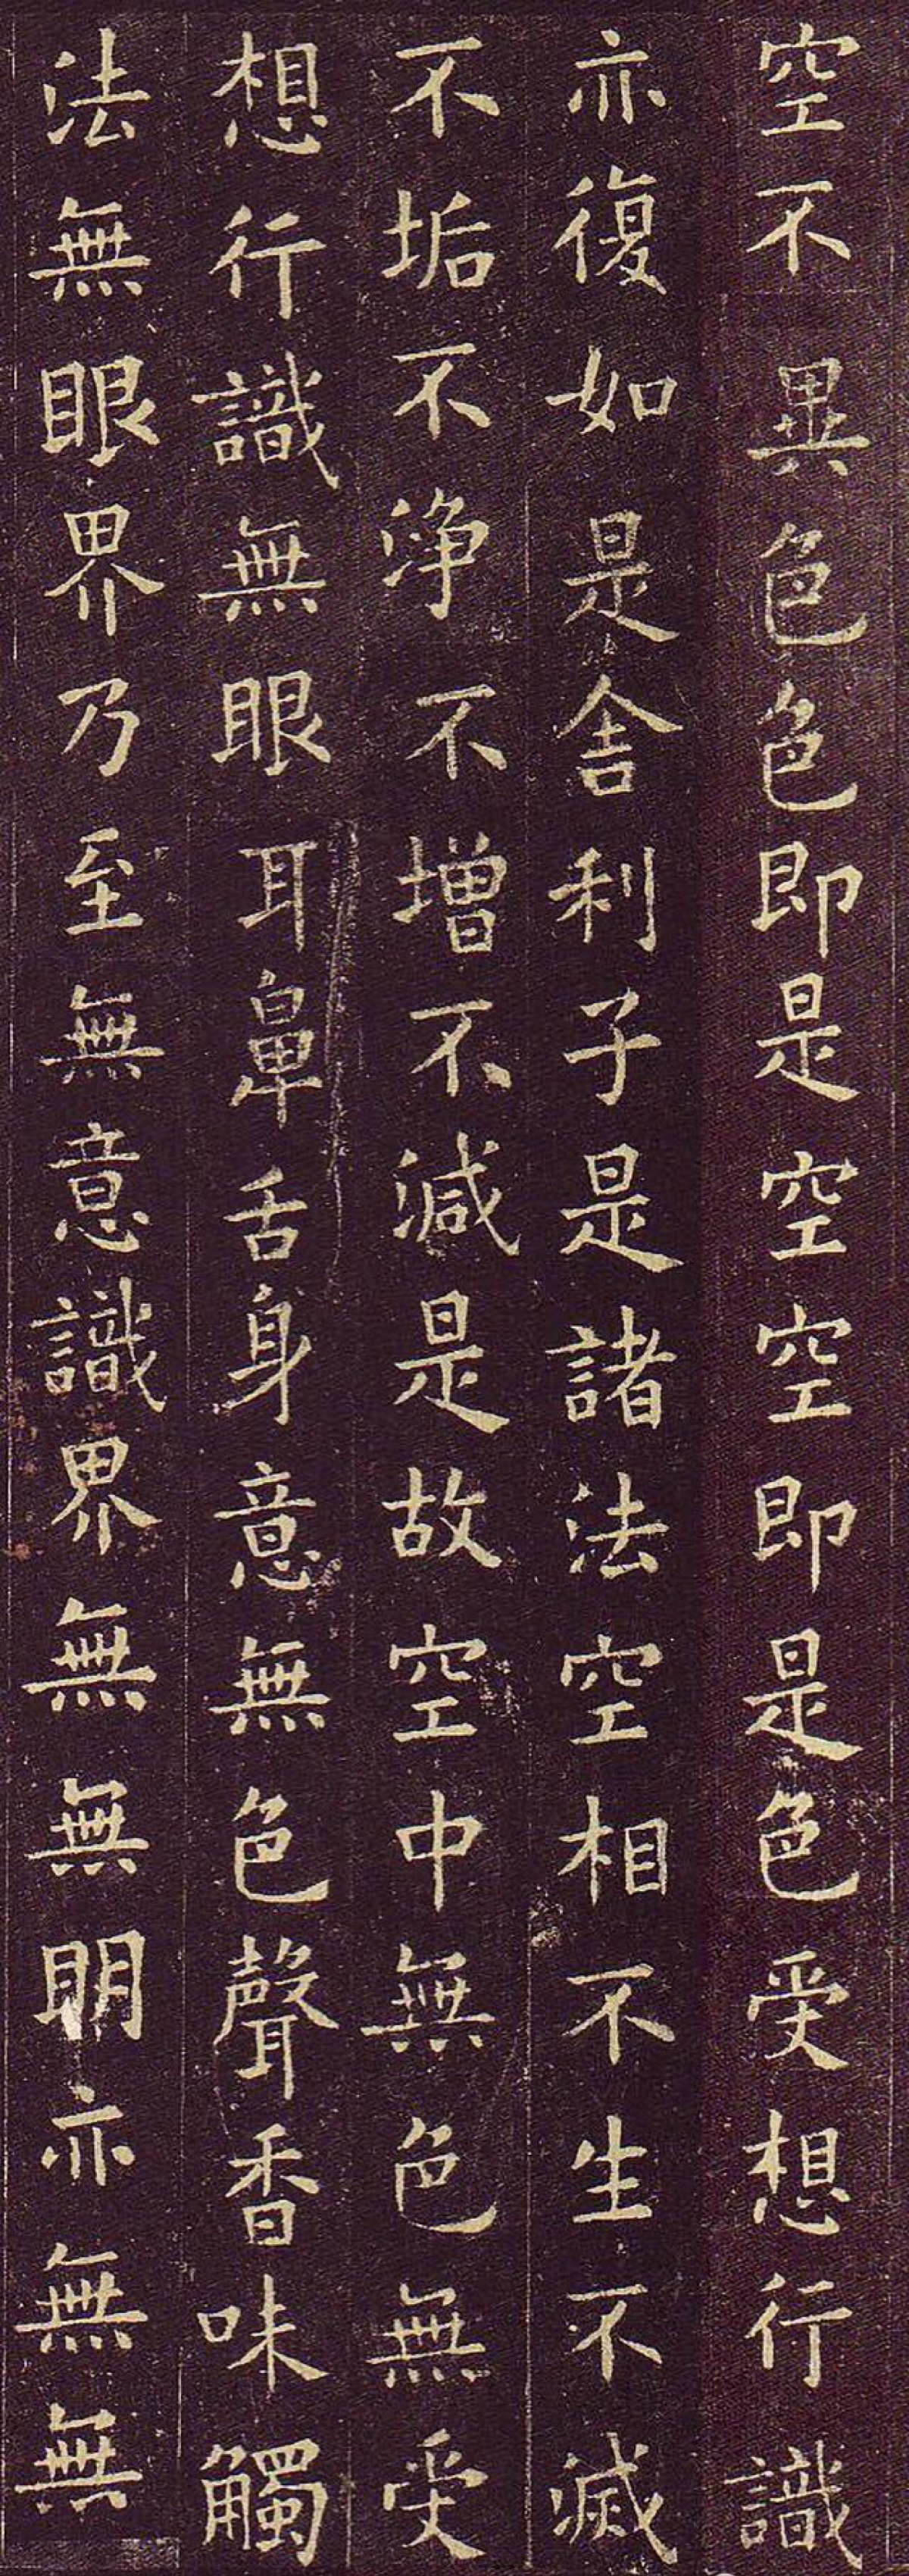 空不異色色即是空空即是色受想行識
亦復如是舍利子是諸法空相不生不滅
不垢不淨不增不減是故空中無色無受
想行識無眼耳鼻舌身意無色聲香味觸
法無眼界乃至無意識界無無明亦無無